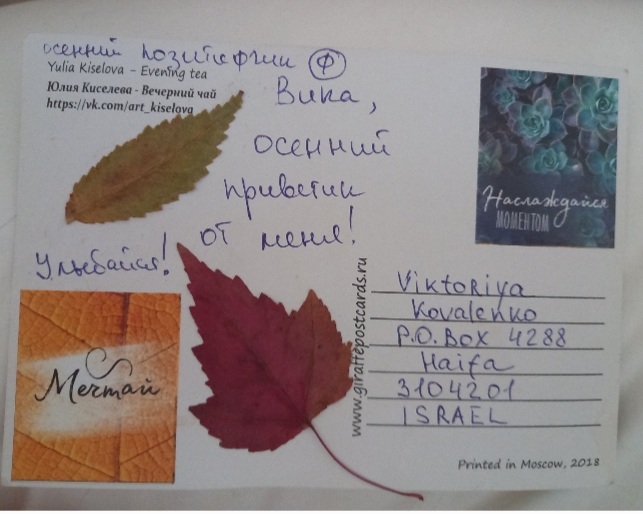 осенний позитифчик Ф
Yulia Kiselova - Evening tea
Юлия Киселева - Вечерний чай
https://vk.com/art_kiselova
Вика,
осенний
приветик
от меня!
Улыбайся!
Мечтай
Наслаждайся
МОМЕНТОМ
www.giraffepostcards.ru
Viktoriya
Kovalenko
P.O. Box 4288
Haifa
3104201
ISRAEL
Printed in Moscow, 2018